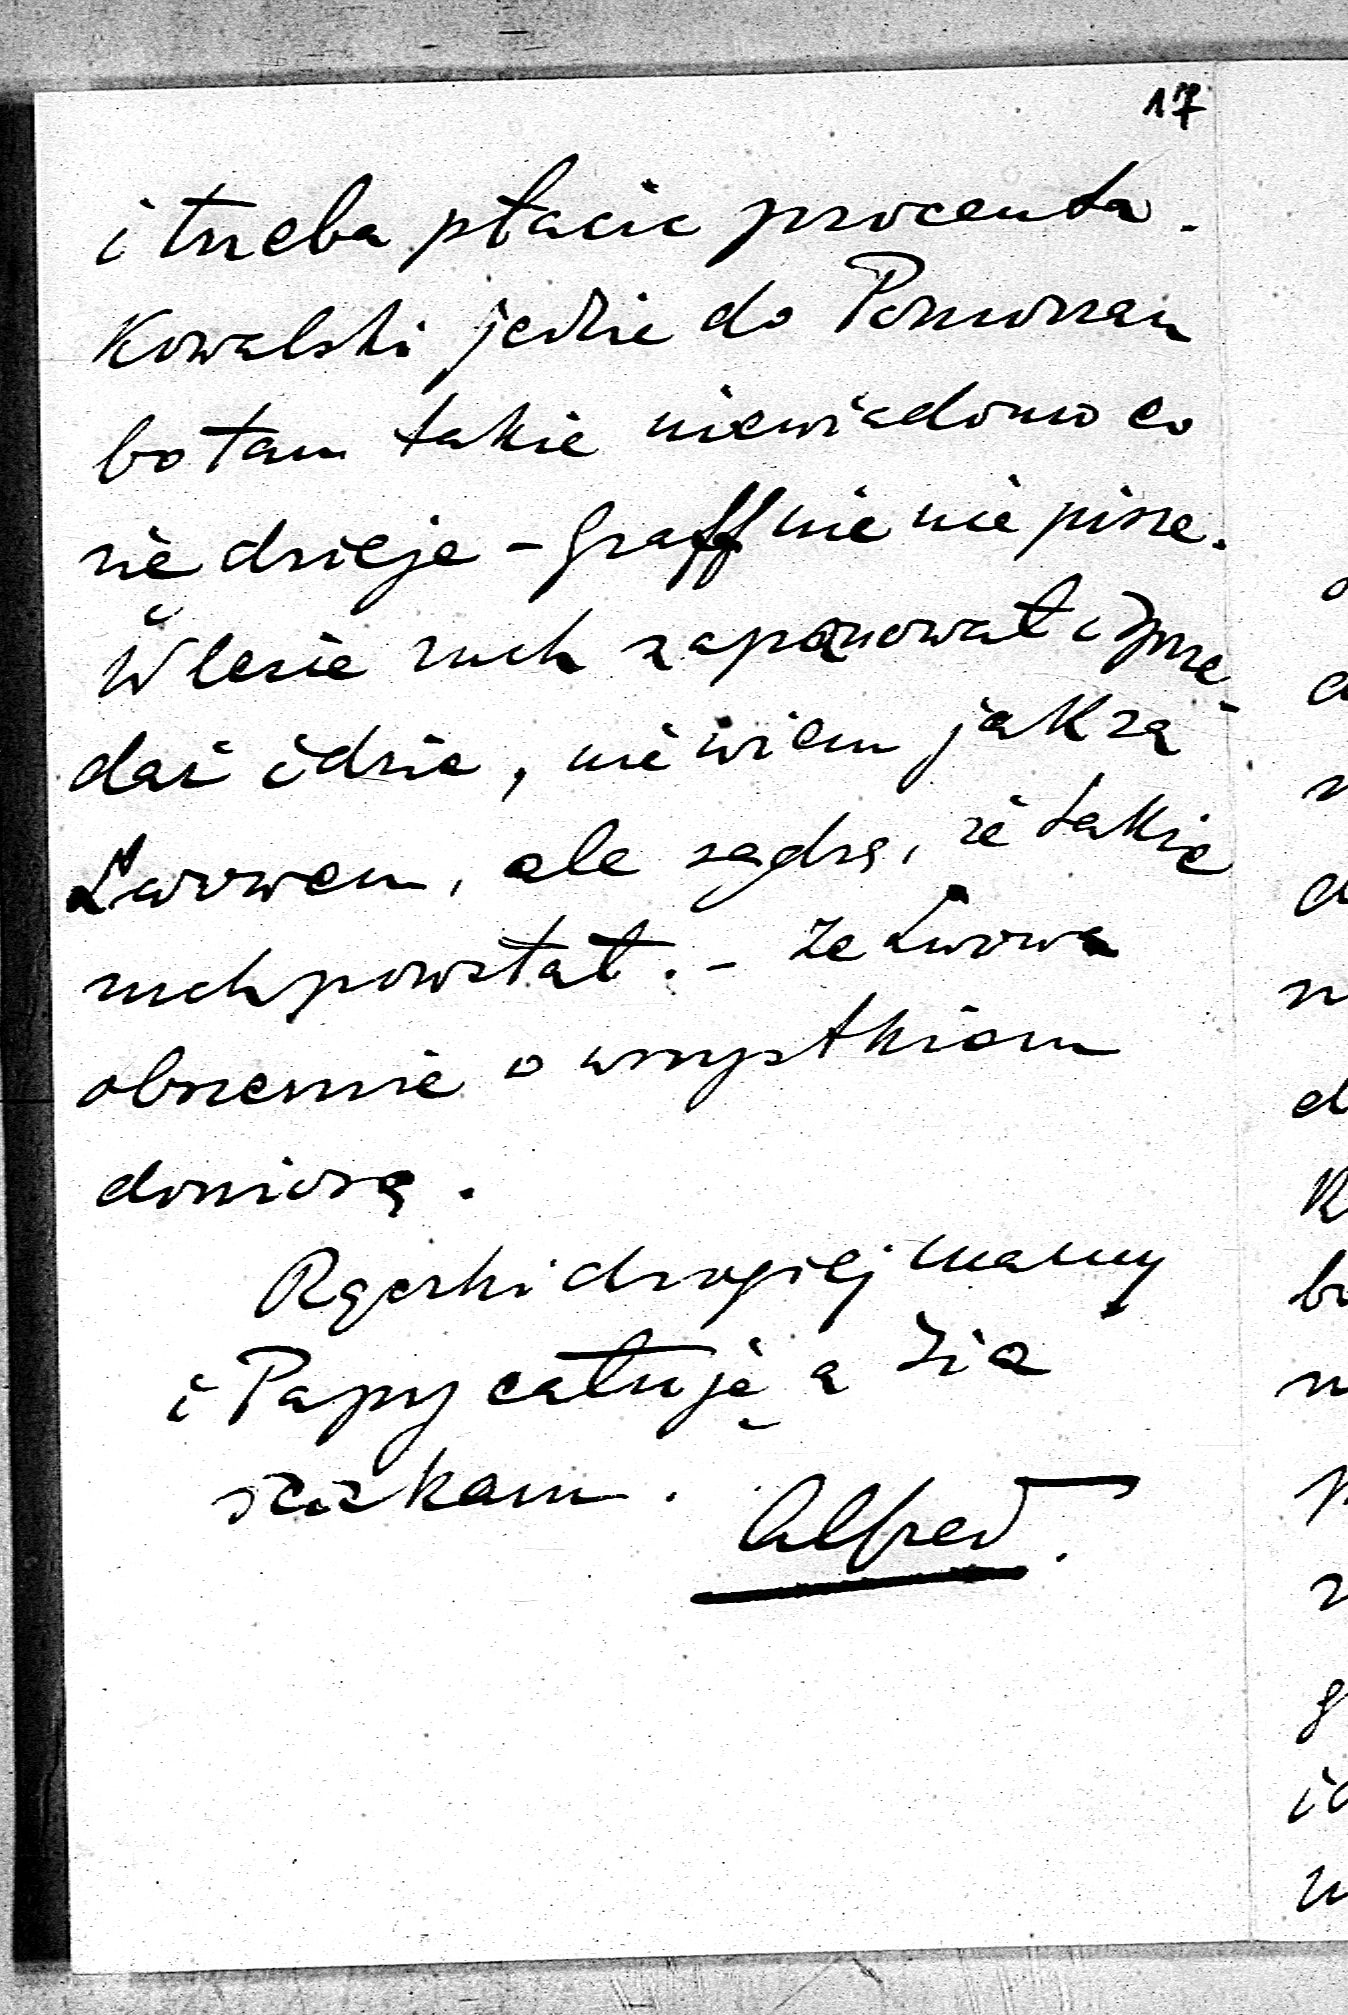 17
i trzeba płacić procenta.
Kowalski jedzie do Pomorzan
bo tam także niewiadomo co
się dzieje - Graff nie nie pisze.
W lesie ruch zapanował i sprze
daż idzie, nie wiem jak za
Lwowem, ale sądzę, że także
ruch powstał. - Ze Lwowa
obszernie o wszystkiem
doniosę.
Rączki drogiej Mamy
i Papy całuję a Zia
ściskam.
Alfred.